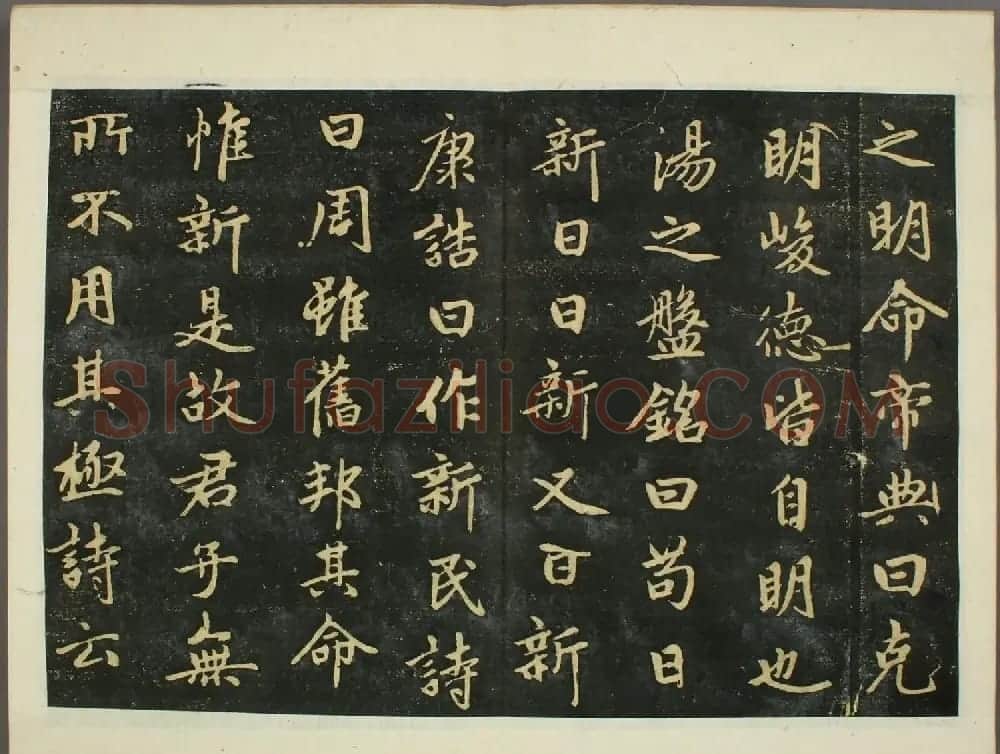 之明命帝典曰克
明峻德皆自明也
湯之盤銘曰苟日
新日日新又日新
康誥曰作新民詩
曰周雖舊邦其命
惟新是故君子無
所不用其極詩云
Shufaziliao.COM